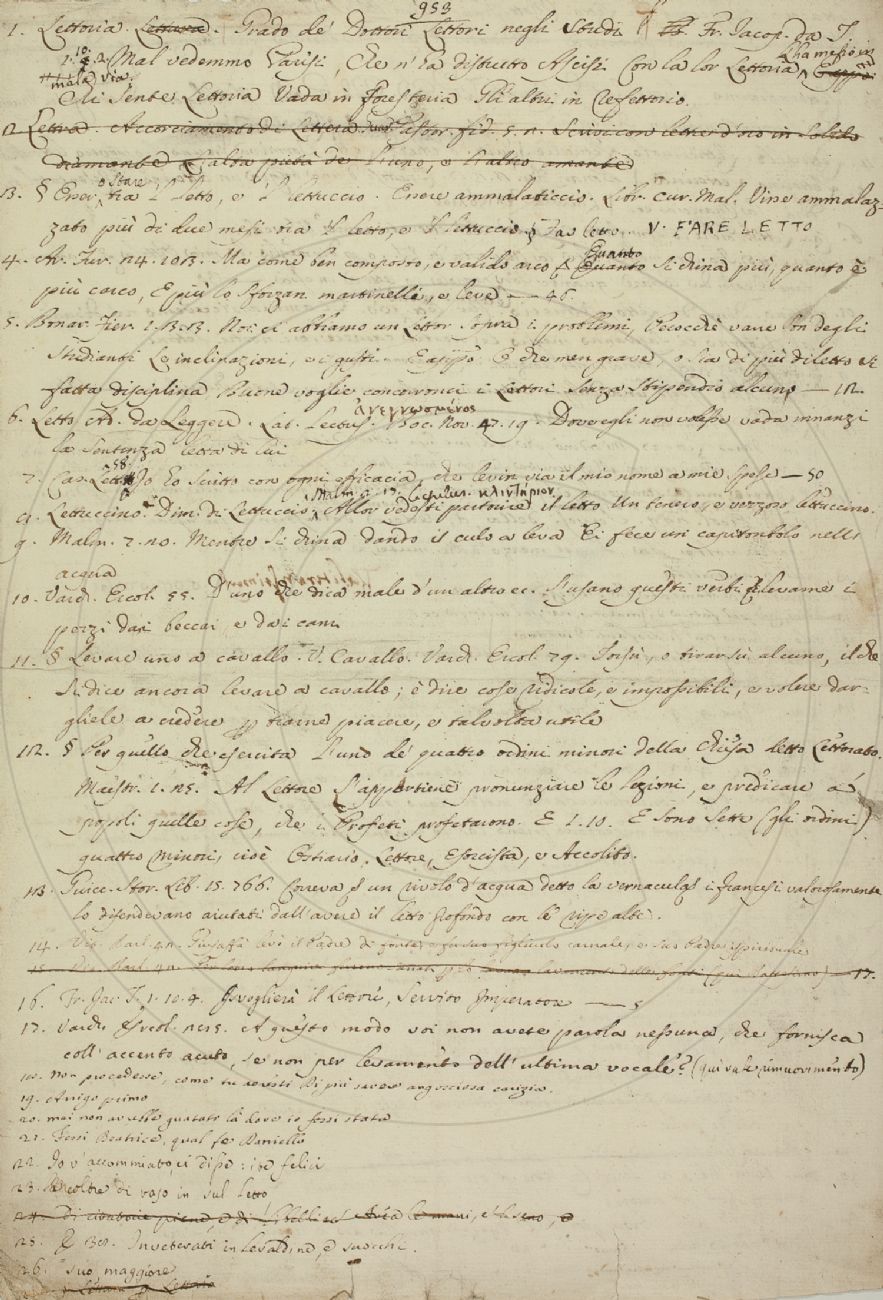 953
1. Lettoria. Lettura. Grado de' Dottori Lettori negli Studi Fr. Jacop. da T.
1. 10. 2. Mal vedemmo Parisi, Che n' ha distrutto Ascisi Con la lor Lettoria l'ha messo in
mala via.
Chi sente Lettoria Vada in foresteria Gli altri in Refettorio.
12 Lettra. Accorciamento di Lettera. Past. fid. 5. Scrivi con lettre d'oro in
diamante L'alta pietà de l'uno, e l'altro amante
13. § Esser, o stare tra 'l Letto, e 'l Lettuccio. Essere ammalaticcio. Libr. cur. Mal. Visse ammalaz-
zato più di due mesi tra 'l letto, e 'l lettuccio § Far letto. V. FARE LETTO
4. Ar. Fur. 24. 103. Ma come ben composto, e valido arco Quanto si china più, quanto è
più carco, E più lo sforzan martinelli, e leve — 46.
5. Bonar. Fier. 1. 3. 3. Noi ci abbiamo un Lettor sopra i problemi, Perocchè varie son degli
studianti Le inclinazioni, e i gusti Eassi Che men grave, o sia di più diletto Si
fatta disciplina Buone voglie concorronci i Lettori Senza stipendio alcuno — 12.
6. Letto Ad. da Leggere. Lat. Lectus. ἀνεγνωσμένος Boc. Nov. 47. 19. Dove egli non volesse vada innanzi
la sentenza letta di lui
7. Cas. Lett. 58 Io Ho scritto con ogni efficacia, che levin via il mio nome a mie spese — 50
Lettuccino. Dim. di Lettuccio. Lat. Lectulus. κλιντήριον Allor vedesti partorire il letto Un tenero, e vezzoso lettuccino.
9. Malm. 7. 20. Mentre si china dando il culo a leva Ei fece un capitombolo nell'
acqua
10. Varch. Ercol. 55. D'uno che dica male d'un altro ec. S'usano questi verbi levarne i
pezzi dai beccai, e dai cani
11. § Levare uno a cavallo. V. Cavallo. Varch. Ercol. 79. o tirar sù alcuno, il che
si dice ancora levare a cavallo; è dire cose ridicole, e impossibili, e volere dar-
gliele a credere per trarne piacere, e talvolta utile
112. § Per quello che esercita l'uno de' quattro ordini minori della Chiesa detto Lettorato.
Maestr. 1. 15. Al Lettore s'appartiene pronunziare le lezioni, e predicare a'
popoli quelle cose, che i Profeti profetarono. E 1. 10. E sono sette (gli ordini)
quattro minori, cioè Ostiario, Lettore, Esorcista, e Accolito.
113. Guicc. Stor. Lib. 15. 766. Correva un rivolo d'acqua detto la vernacula i franzesi valorosamente
lo difendevano aiutati dall' avere il letto profondo con le ripe alte.
14. Giosaffà levò il Padre di fonte, figliuolo carnale, e suo Padre spirituale
15. 17.
16. Fr. Jac. T. 1. 10. 4. Svoglierà il Lettore, Servito Imperatore — 5
17. Varch. Ercol. 215. A questo modo voi non avete parola nessuna, che fornisca
coll' accento acuto, se non per levamento dell' ultima vocale? (qui vale rimuovimento)
18. Non procedesse, come tu avresti Di più savere angosciosa carizia.
19. Arrigo primo
20. mai non avesse guatato là dove io fossi stata
21. Fessi Beatrice, qual fe Daniello
22. Io v'accommiato, ei disse: ite felici
23. di vaso in sul letto
24.
25. Inveterati in levaldine, e suocchi.
26. suo, maggiore